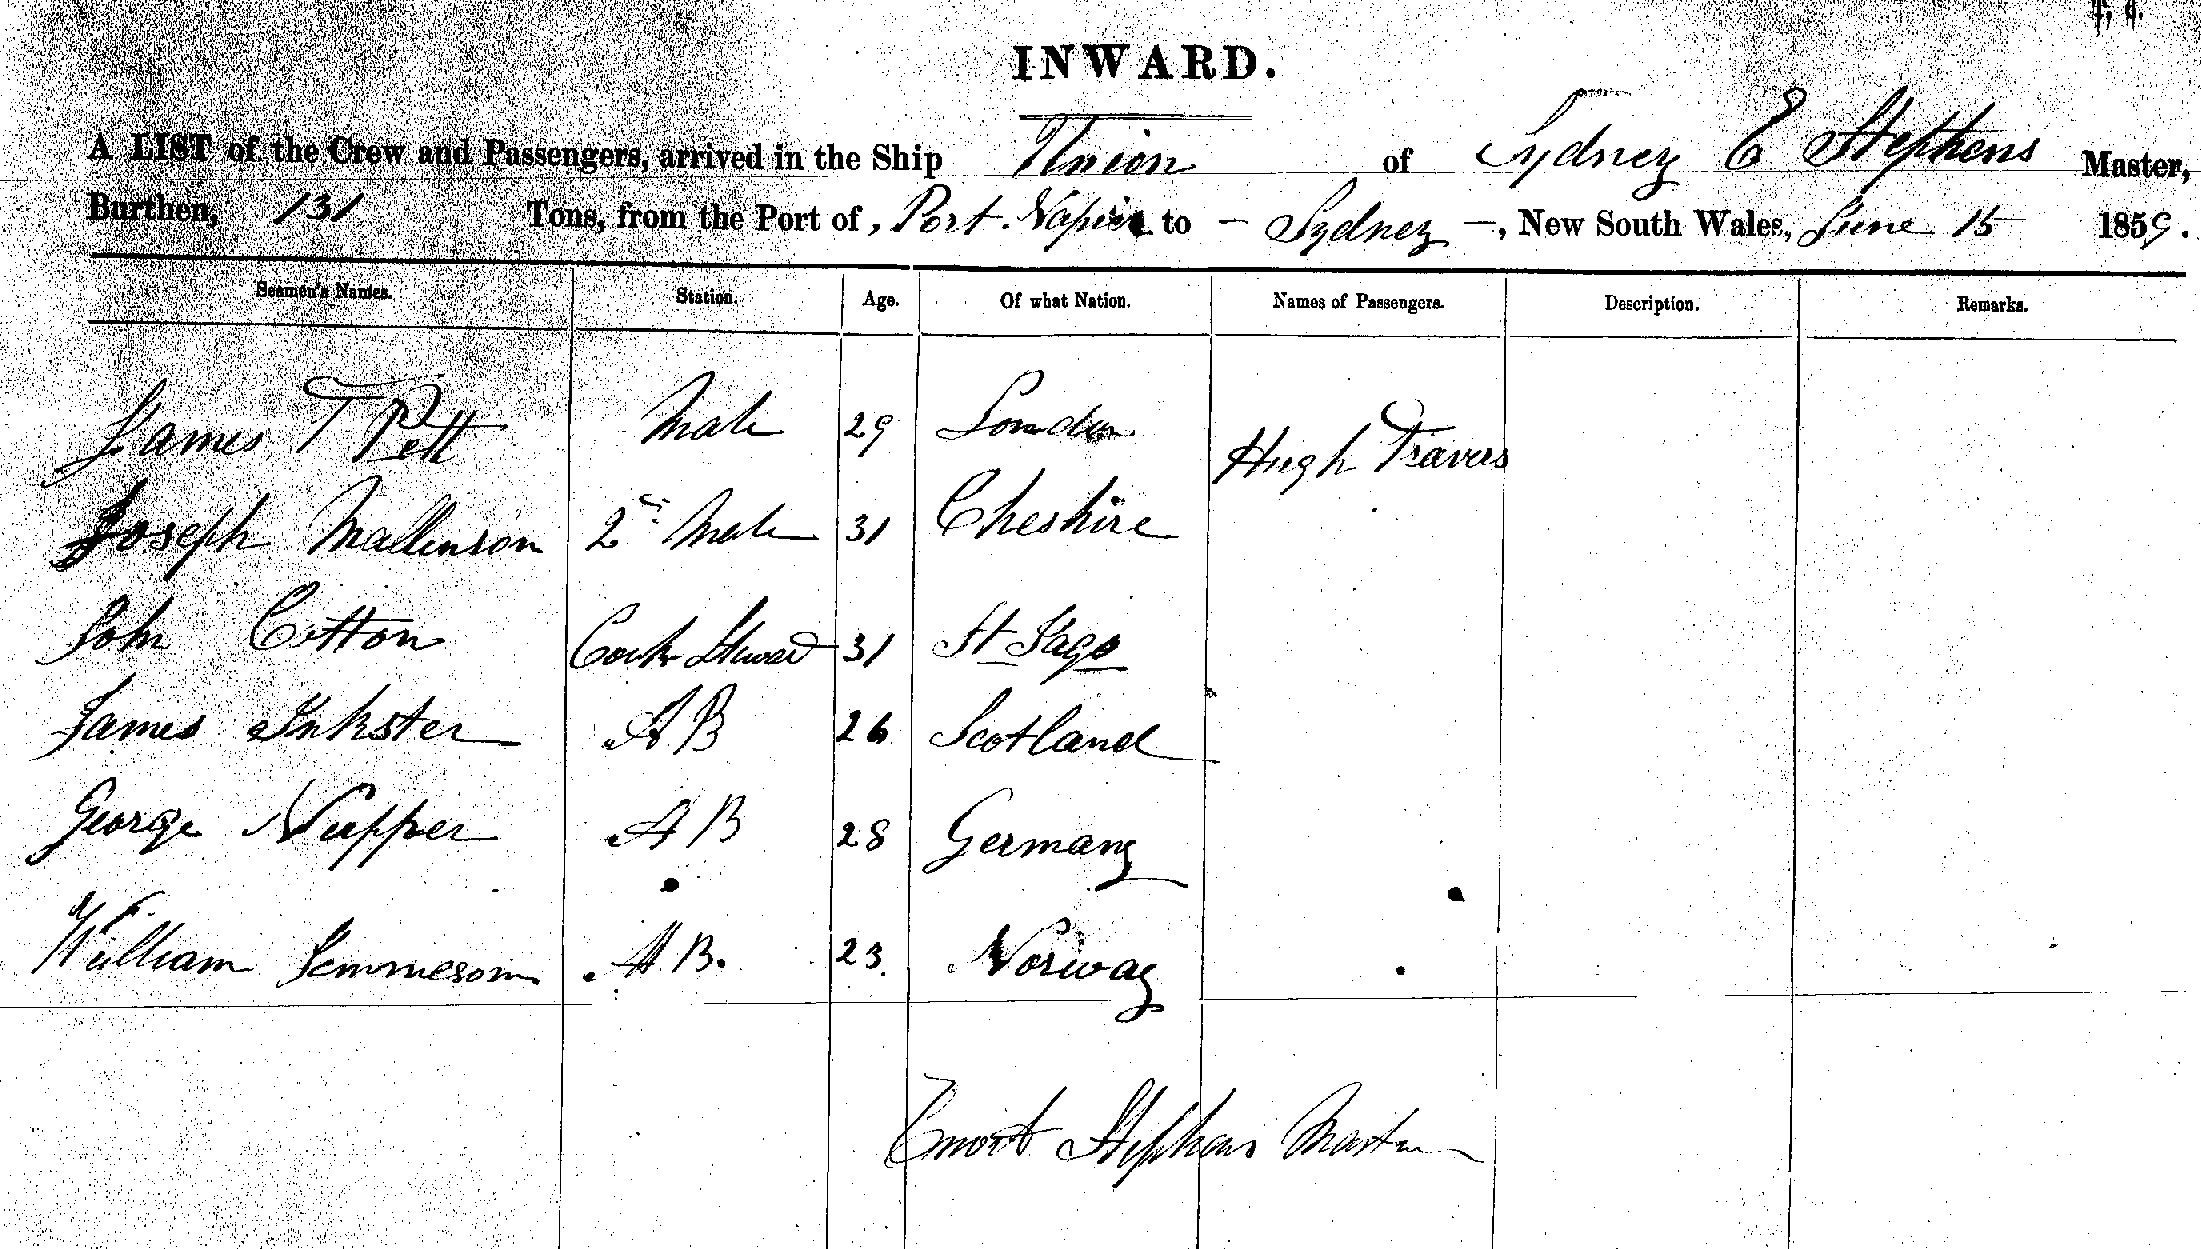 INWARD.
A LIST of the Crew and Passengers, arrived in the Ship Union of Sydney E Stephens Master,
Burthen, 131 Tons, from the Port of, Port Napier to - Sydney -, New South Wales, June 15 1859.
Seamen's Names. Station. Age. Of what Nation. Names of Passengers. Description. Remarks.
James T Pett Mate 29 London Hugh Travers
Joseph Mallinson 2nd Mate 31 Cheshire
John Cotton Cook Steward 31 St Jago
James Inkster AB 26 Scotland
George Nupper AB 28 Germany
William Semmeson AB. 23. Norway
Stephens Master